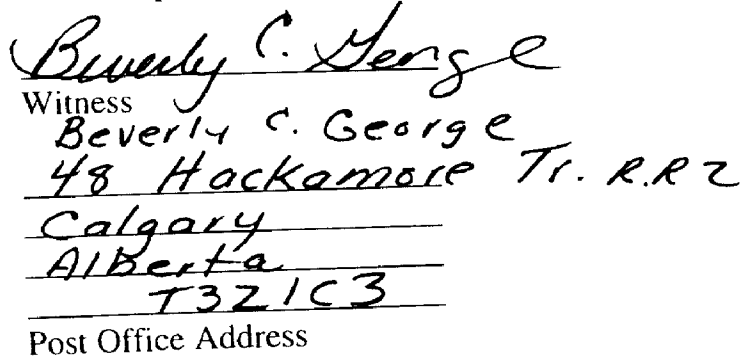 Beverly C. George
Witness
Beverly C. George
48 Hackamore Tr. R.R 2
Calgary
Alberta
T3Z1C3
Post Office Address